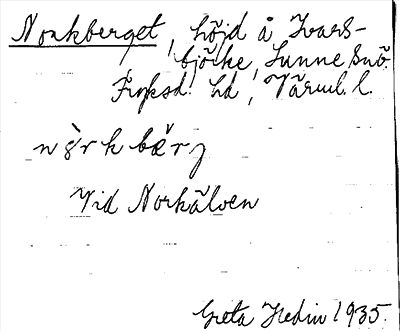 Norkberget, höjd å Ivars-
björke, Sunne snö.
Fryksd. hd, Värml. l.
Vid Norkälven
Greta Hedin 1935.